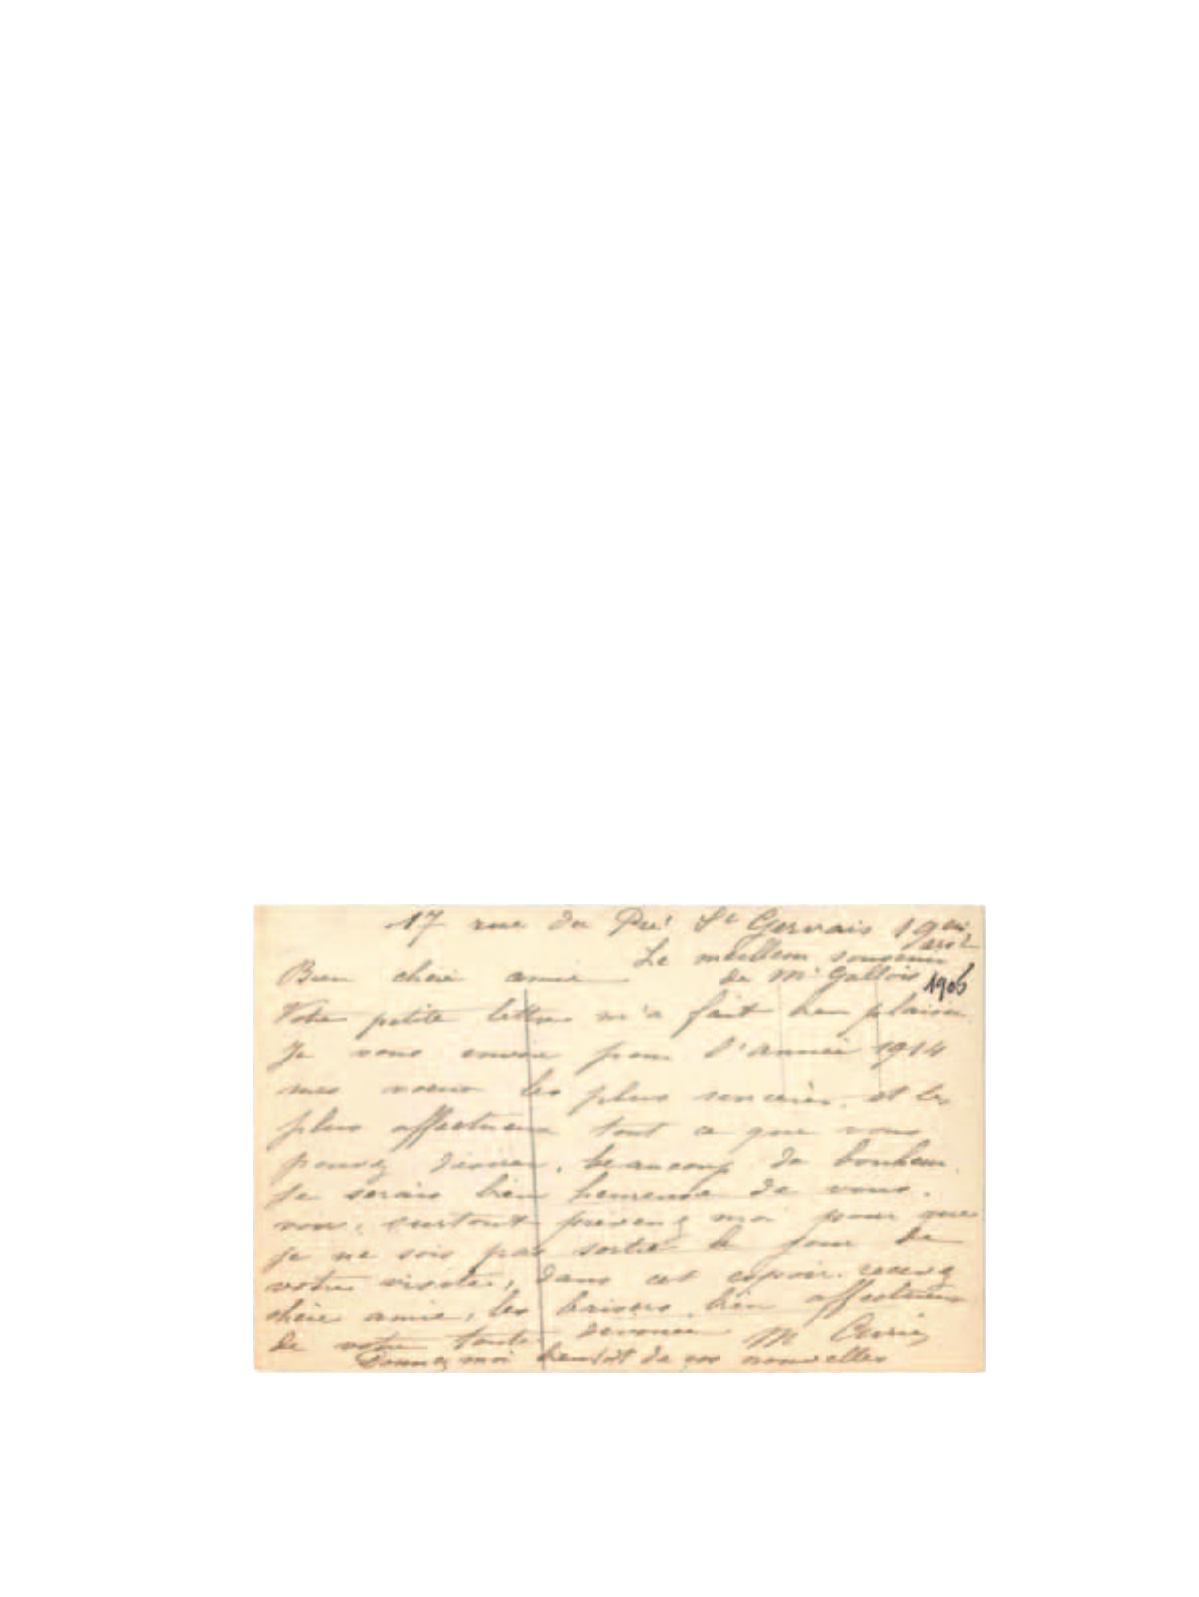 17 rue du Pré St Gervais 19em
arrt
Le meilleur souvenir
Bien chèrie amie de Mr Gallois 1906
Votre petite lettre m'a fait bien plaisir
Je vous envoie pour l'année 1914
mes voeux les plus sincères. et les
plus affectueux tout ce que vous
pouvez désirer, beaucoup de bonheur.
Je serais bien heureuse de vous
voir, surtout prevenez moi pour que
je ne sois pas sortie le jour de
votre visite, dans cet espoir. recevez
chère amie, les baisers bien affectueux
de votre toute devouée M
Donnez moi bientôt de vos nouvelles